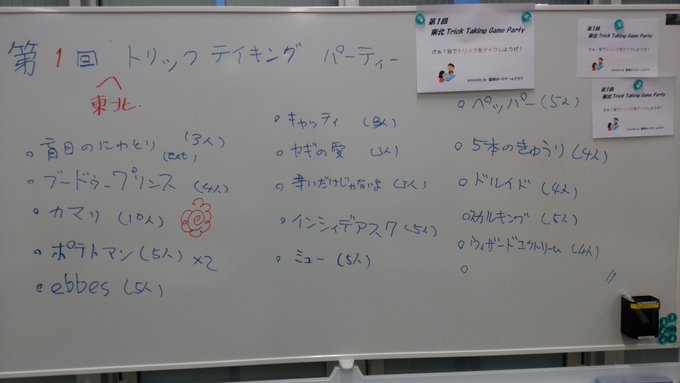 第1回 トリックテイキング パーティー
東北
盲目のにわとり (3人)
ブードゥープリンス (4人)
カマリ (10人)
ポテトマン (5人) ×2
ebbes (5人)
キャッティ
七ギの愛 (3人)
辛いだけじゃないよ (3人)
インシィデアス7 (5人)
ミュー (5人)
ペッパー (5人)
5本のきゅうり (4人)
ドルイド (4人)
スカルキング (5人)
ウィザードエクストリーム (4人)
第1回
東北 Trick Taking Game Party
さぁ！皆でトリックをテイクしようぜ！
第1回
東北 Trick Taking Game Party
さぁ！皆でトリックをテイクしようぜ！
第1回
東北 Trick Taking Game Party
さぁ！皆でトリックをテイクしようぜ！